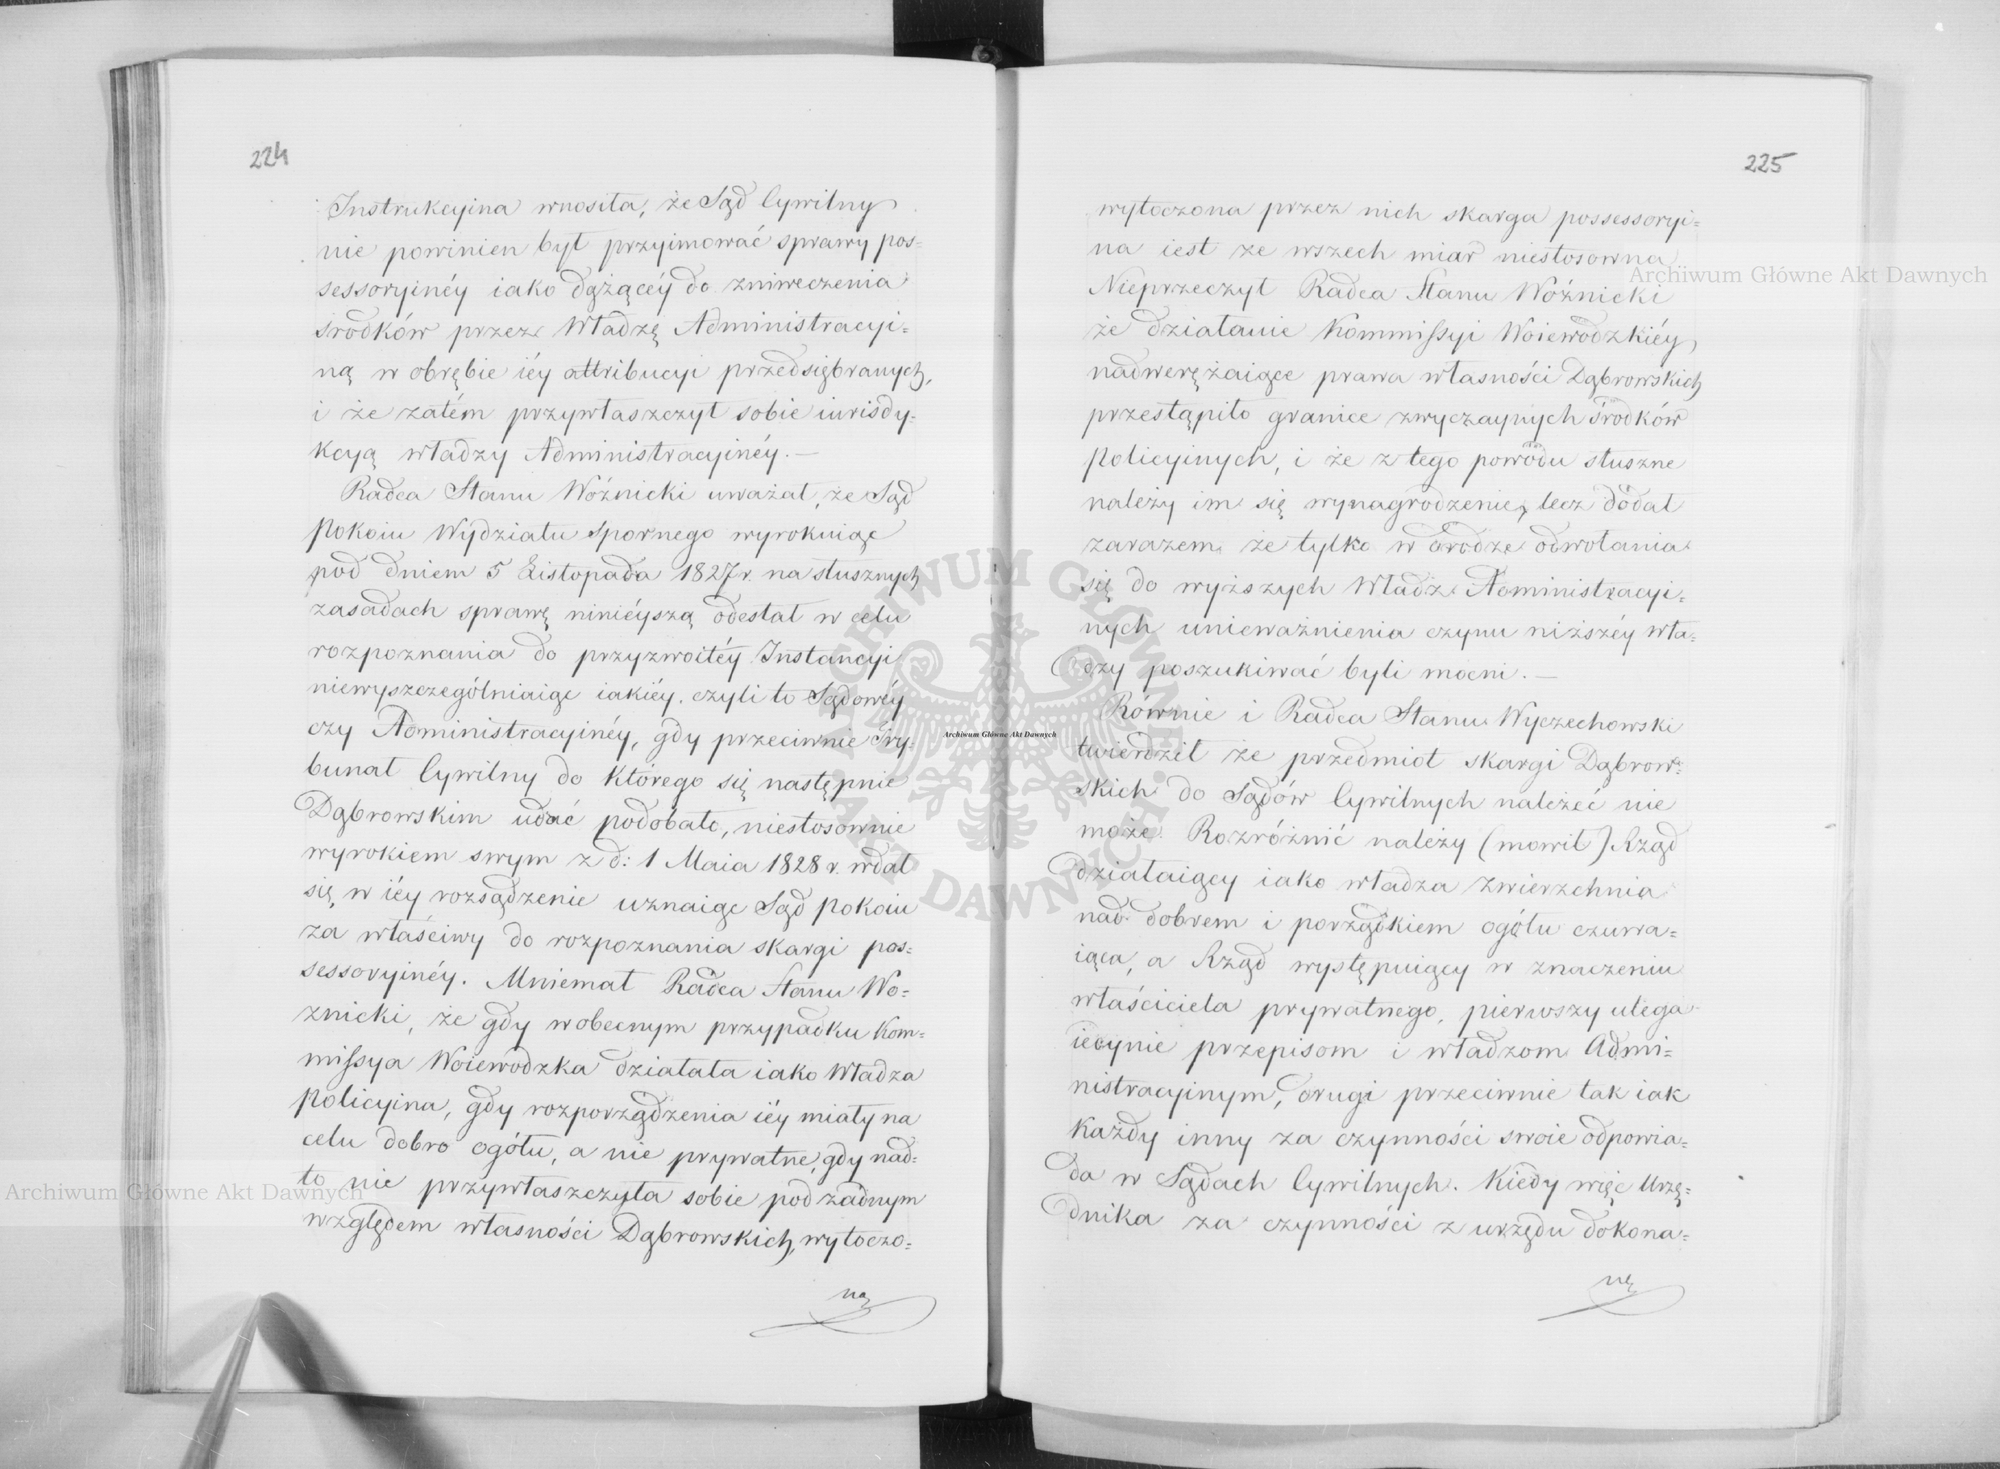 224
Instrukcyina wnosiła, że Sąd Cywilny
nie powinien był przyimować sprawy pos=
sessoryinéy iako dążącéy do zniweczenia
środków przez Władzę Administracyi=
ną w obrębie iéy attribucyi przedsiębranych,
i że zatém przywłaszczył sobie iurisdy-
kcyą władzy Administracyinéy. —
Radca Stanu Woźnicki uważał, że Sąd
Pokoiu Wydziału Spornego wyrokuiąc
pod dniem 5 Listopada 1827 r. na słusznych
zasadach sprawę niniéyszą odesłał w celu
rozpoznania do przyzwoitéy Instancyi
niewyszczególniaiąc iakiéy. czyli to Sądowéy
czy Administracyinéy, gdy przeciwnie Try-
bunał Cywilny do którego się następnie
Dąbrowskim udać podobało, niestosownie
wyrokiem swym z d: 1 Maia 1828 r. wdał
się w iéy rozsądzenie uznaiąc Sąd pokoiu
za właściwy do rozpoznania skargi pos=
sessoryinéy. Mniemał Radca Stanu Wo=
znicki, że gdy w obecnym przypadku Kom=
missya Woiewodzka działała iako Władza
Policyina, gdy rozporządzenia iéy miały na
celu dobro ogółu, a nie prywatne, gdy nad=
to nie przywłaszczyła sobie pod żadnym
względem własności Dąbrowskich, wytoczo=
na
225
wytoczona przez nich skarga possessoryi=
na iest ze wszech miar niestosowna
Nieprzeczył Radca Stanu Woźnicki
że działanie Kommissyi Woiewodzkiéy
nadwerężaiące prawa własności Dąbrowskich
przestąpiło granice zwyczaynych środków
Policyinych, i że z tego powodu słuszne
należy im się wynagrodzenie, lecz dodał
zarazem, że tylko w drodze odwołania
się do wyższych Władz Administracyi=
nych unieważnienia czynu niższéy wła=
dzy poszukiwać byli mocni. —
Równie i Radca Stanu Wyczechowski
twierdził że przedmiot skargi Dąbrow=
skich do Sądów Cywilnych należeć nie
może. Rozróżnić należy (mówił) Rząd
działaiący iako władza zwierzchnia
nad dobrem i porządkiem ogółu czuwa=
iąca, a Rząd występuiący w znaczeniu
właściciela prywatnego, pierwszy ulega
iedynie przepisom i władzom Admi=
nistracyinym, drugi przeciwnie tak iak
każdy inny za czynności swoie odpowia=
da w Sądach Cywilnych. Kiedy więc Urzę=
dnika za czynności z urzędu dokona=
ne
Archiwum Główne Akt Dawnych
Archiwum Główne Akt Dawnych
Archiwum Główne Akt Dawnych
ARCHIWUM GŁÓWNE AKT DAWNYCH